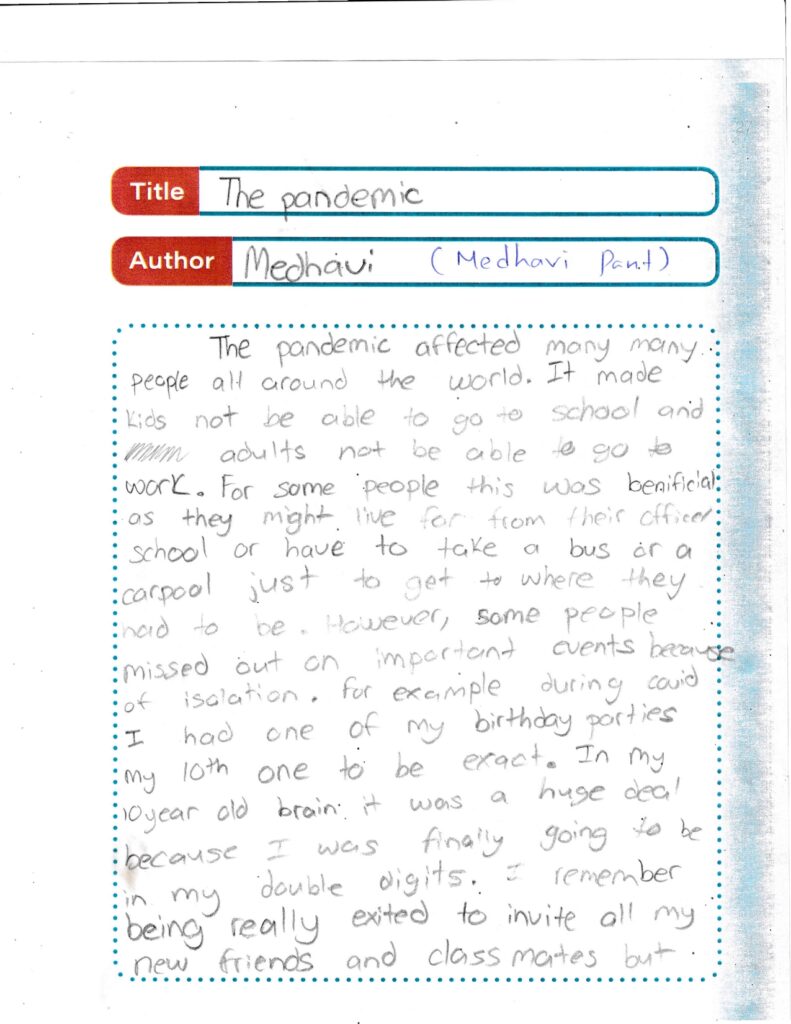 Title The pandemic
Author Medhavi (Medhavi Pant)
The pandemic affected many many
people all around the world. It made
kids not be able to go to school and
adults not be able to go to
work. For some people this was benificial
as they might live far from their office/
school or have to take a bus or a
carpool just to get to where they
had to be. However, some people
missed out on important events because
of isolation. for example during covid
I had one of my birthday parties
my 10th one to be exact. In my
10 year old brain it was a huge deal
because I was finally going to be
in my double digits. I remember
being really exited to invite all my
new friends and classmates but